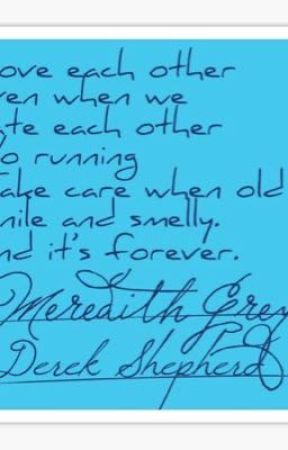 ove each other
ven when we
ate each other
o running
ake care when old
nile and smelly.
nd it's forever.
Meredith Grey
Derek Shepherd